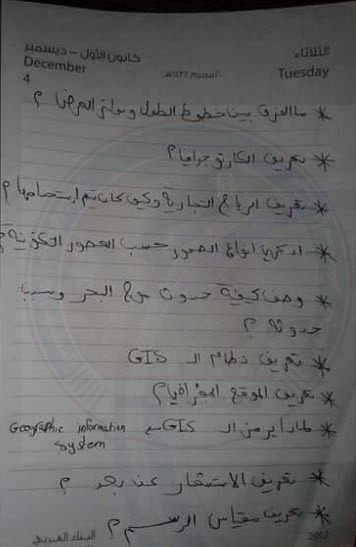 الثلاثاء
كانون الأول - ديسمبر
December
Tuesday
4
* ما الفرق بين خطوط الطول ودوائر العرض؟
* تعريف الكارتوجرافيا؟
* تعريف الرياح التجارية وكيف كان يتم استخدامها؟
* اذكري انواع الصخور حسب العصور التكوينية؟
* وصف كيفية حدوث موج البحر وسبب
حدوثه؟
* تعريف نظام الـ GIS
* تعريف الموقع الجغرافيا؟
* ماذا يرمز الـ GIS Geographic information
system
* تعريف الاستشعار عن بعد؟
* تعريف مقياس الرسم؟
2012